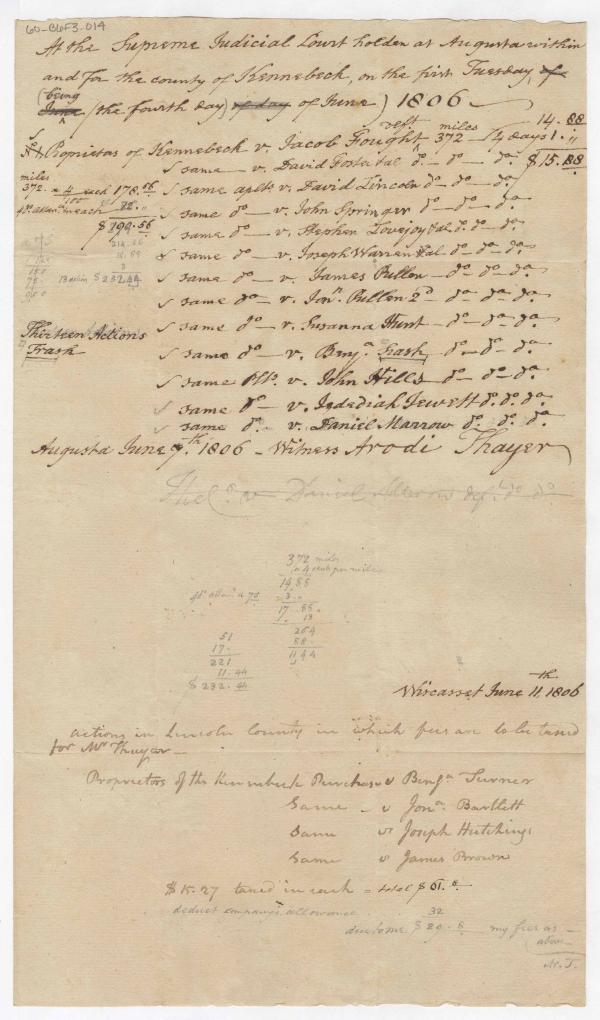 60-B6F3.014
At the Supreme Judicial Court holden at Augusta within
and for the county of Kennebeck, on the first Tuesday, of
(being
June (the fourth day) of day of June) 1806
14.88
Proprietors of Kennebeck v. Jacob Fought, deft miles 372 4 days 1.
$15.88
same v. David Foster &al do. do do.
miles
372. a 4 each 178.56
same aplts v. David Lincoln do do do.
4 ds. attan. in each 12.
same do v. John Springer do do do.
$190.56
same do v. Stephen Lovejoy &al do. do do.
same do v. Joseph Warren &al do. do.
same do v. James Pullen do do do.
13 actions $232.44
same do v. Jonn. Pullen 2d do do do.
same do v. Susanna Hunt do do do.
Thirteen Actions
Trask
same do v. Benja. Trask do. do do.
same Plts. v. John Hills do do do.
same do v. Jedediah Jewett do. do. do.
same do. v. Daniel Marrow do. do. do.
Augusta June 7.th 1806 - Witness Arodi Thayer
v Daniel Marrow def. do do
372 miles
a 4 cents per mile
14.88
4 ds. attan. a 75
3..
17.88
1. 13
264
88
1144
51
17.
221
11.44
$232.44
Wiscasset June 11.th 1806
actions in Lincoln County in which fees are to be taxed
for Mr Thayer
Proprietors of the Kennebeck Purchase v Benja. Turner
Same v Jona. Bartlett
Same v Joseph Hutchings
Same v James Brown
$15.27 taxed in each = total $61.8
deduct company's allowance 32
due to me $29.8 my fees as
above
A. T.